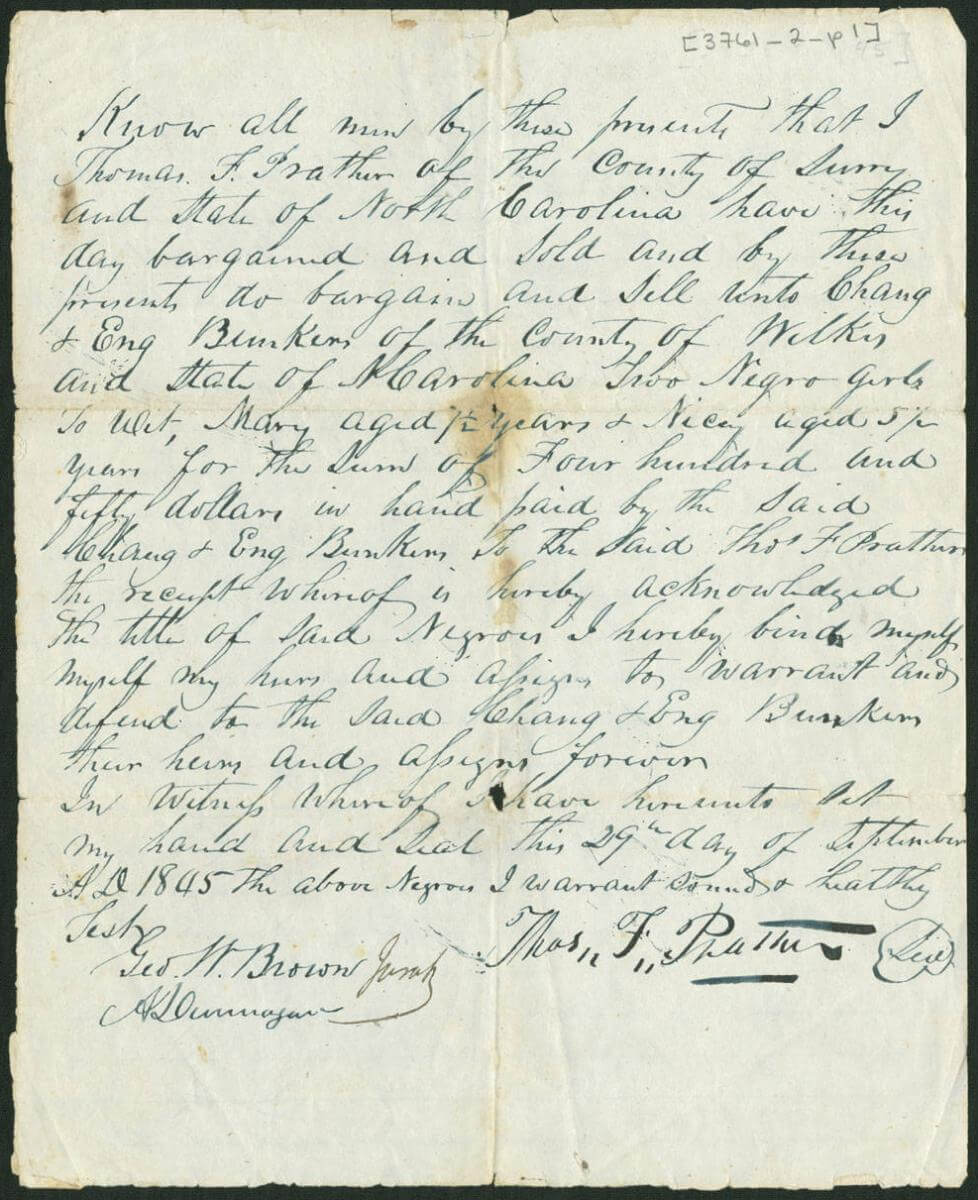 [3761-2-p1]
Know all men by these presents that I
Thomas. F. Prather of the County of Surry
and State of North Carolina have this
day bargained and Sold and by these
presents do bargain and Sell unto Chang
& Eng Bunkers of the County of Wilkes
and State of N Carolina Two Negro girls
To Wit, Mary aged 7½ years & Nicey aged 5½
years for the Sum of Four hundred and
fifty dollars in hand paid by the Said
Chang & Eng Bunkers to the Said Thos F Prather
the receipt whereof is hereby acknowledged
The title of Said Negroes I hereby bind myself
myself my heirs and assigns to warrant and
defend to the Said Chang & Eng Bunkers
their heirs and assigns forever
In Witness Whereof I have hereunto Set
my hand and Seal this 29th day of September
A.D 1845 The above Negroes I warrant sound & healthy
Test
Geo. W. Brown Jurat Thos,, F,, Prather (Seal)